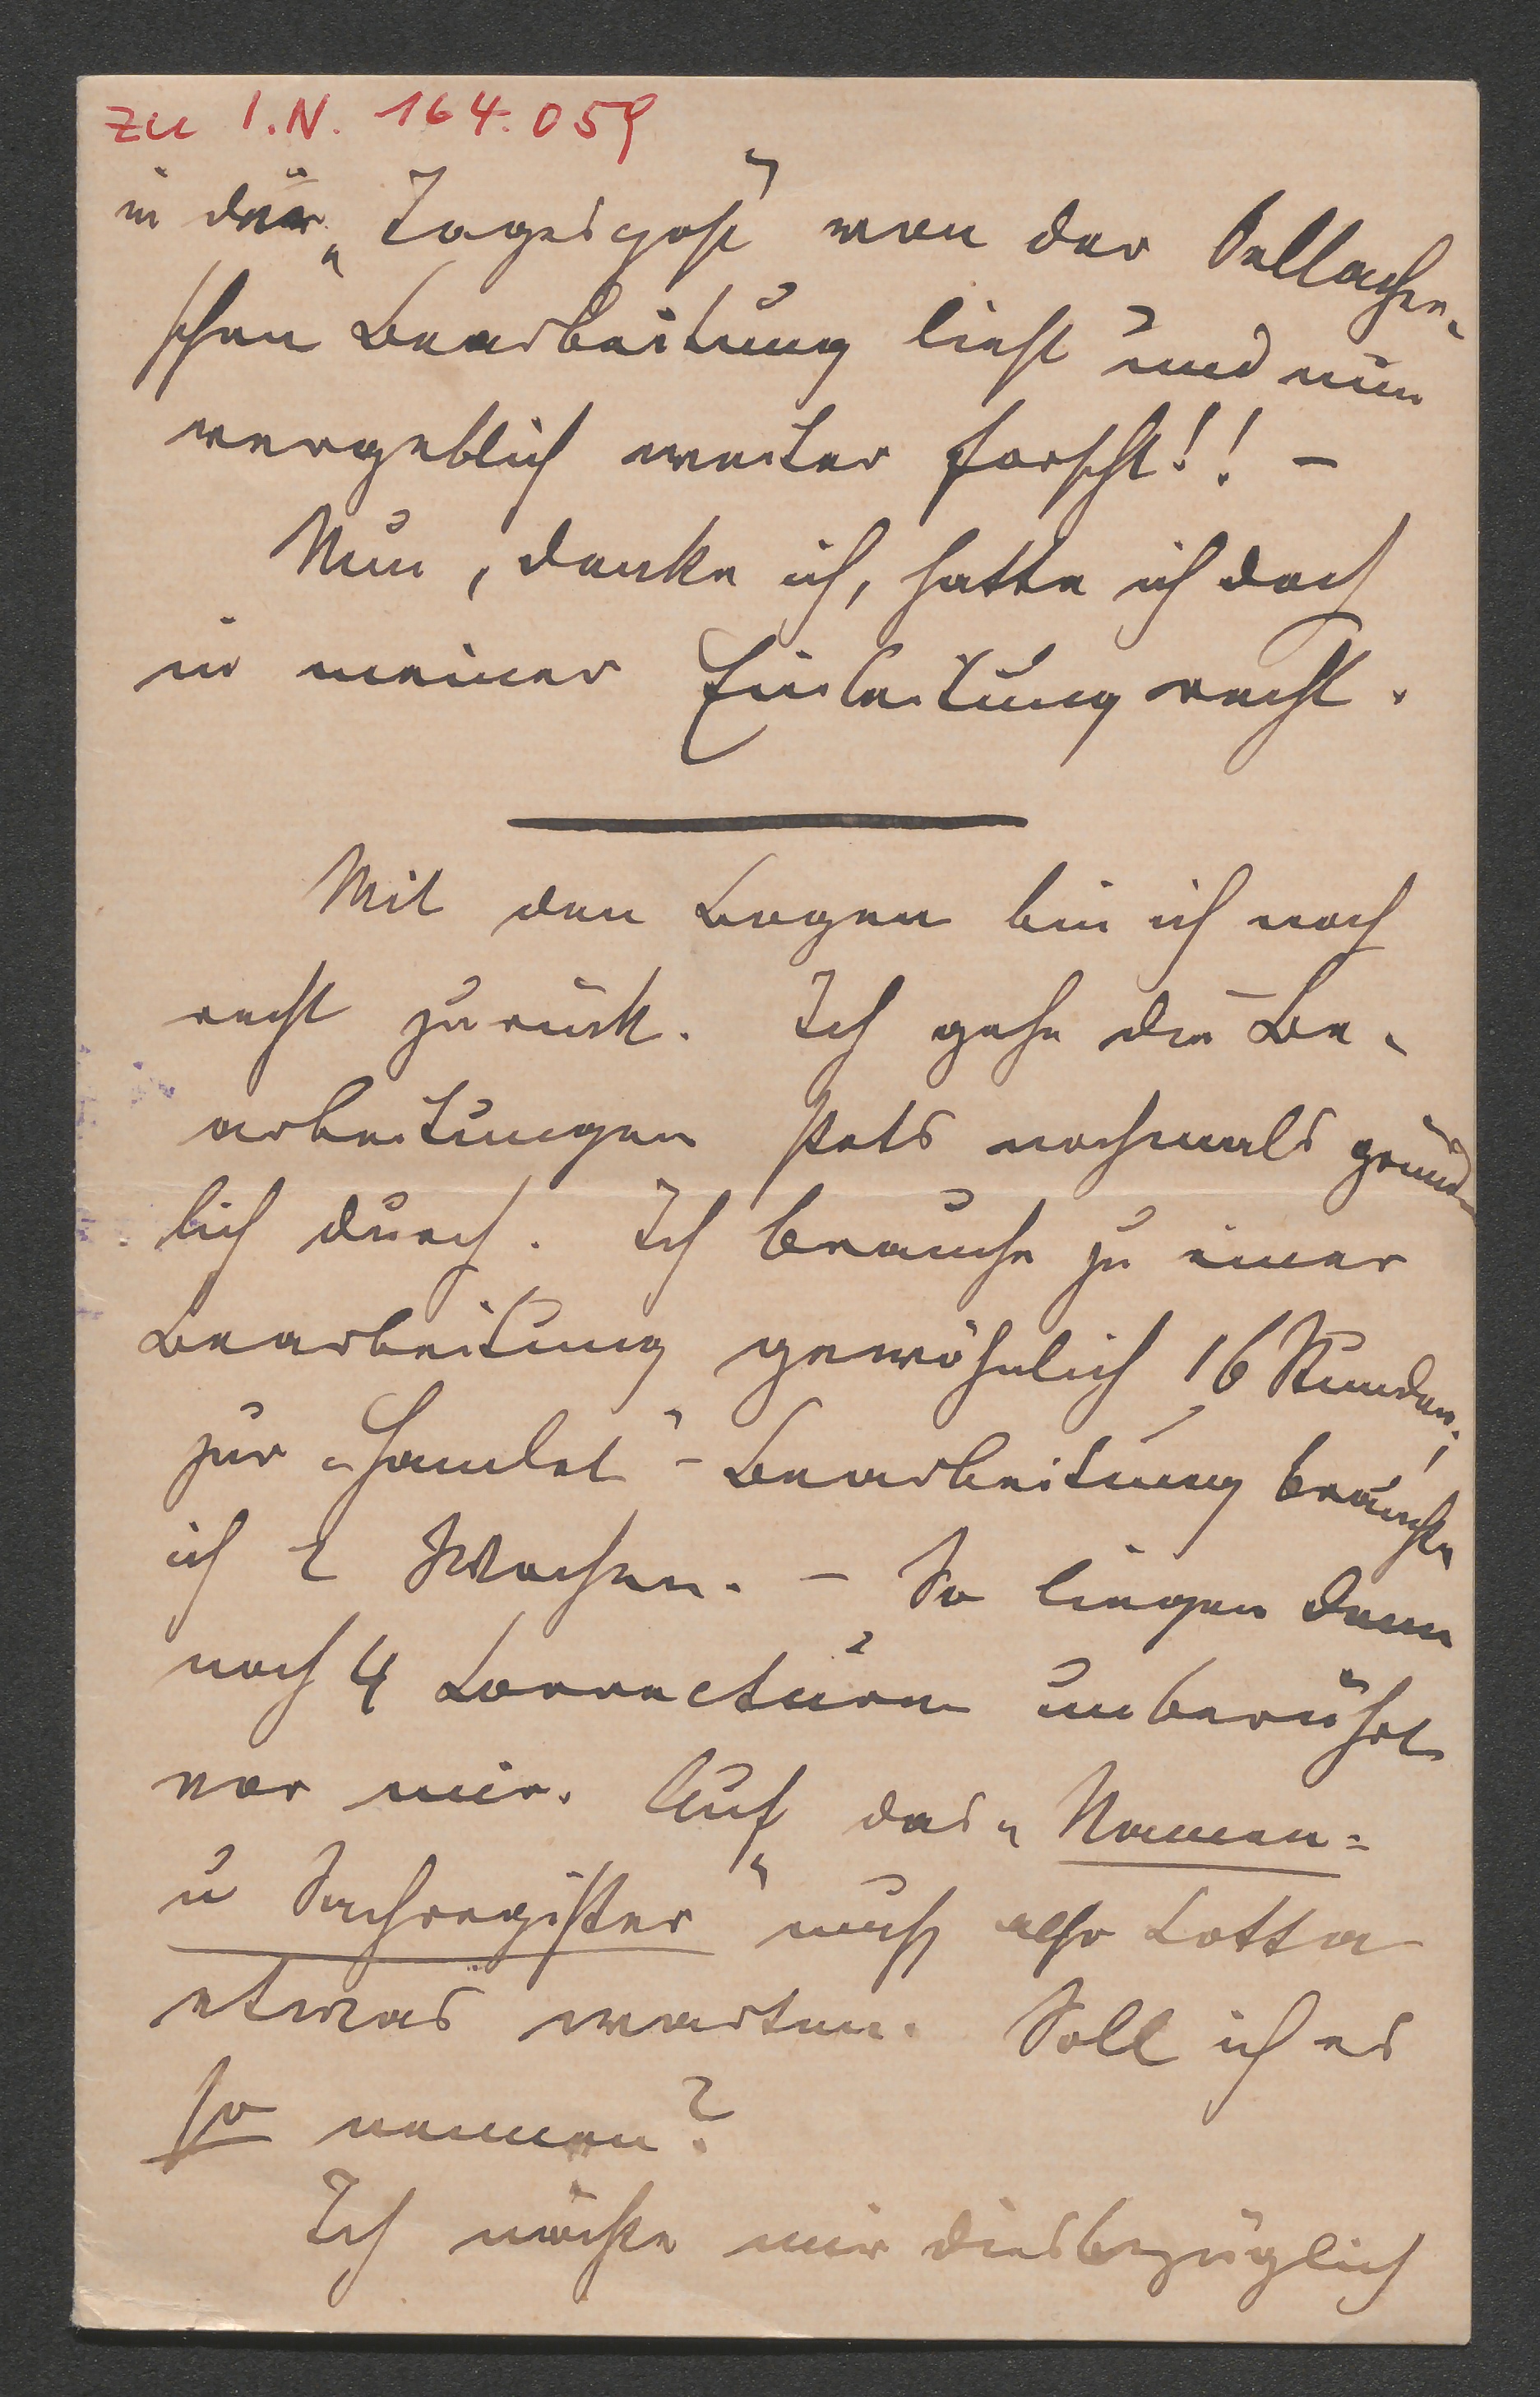 zu I.N. 164.059
in der „Tagespost" von der Bellachi-
schen Bearbeitung liest und nun
vergeblich weiter forscht!! –
Nun, denke ich, hatte ich doch
in meiner Einleitung recht.
Mit den Bogen bin ich noch
recht zurück. Ich gehe die Be-
arbeitungen stets nochmals gründ-
lich durch. Ich brauche zu einer
Bearbeitung gewöhnlich 16 Stunden;
zur „Hamlet"-Bearbeitung brauchte
ich 2 Wochen. – So liegen denn
noch 4 Correcturen unberührt
vor mir. Auf das „Namen-
u Sachregister" muß also Cotta
etwas warten. Soll ich es
so nennen?
Ich möchte mir diesbezüglich